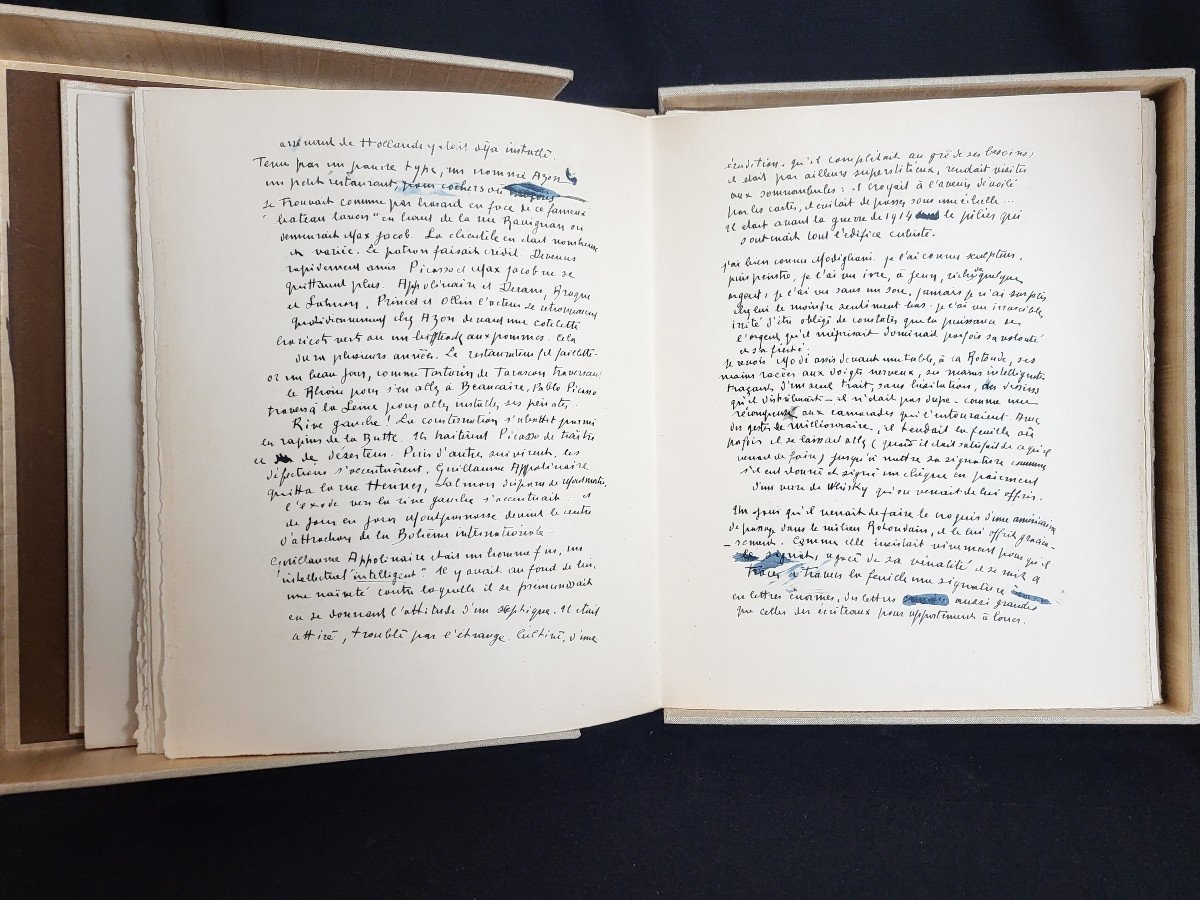 arrivant de Hollande y etait déja installé.
Tenu par un pauvre type, un nommé Azon
un petit restaurant, pour cochers ou maçons
se trouvait comme par hasard en face de ce fameux
"bateau lavoir" en haut de la rue Ravignan ou
demeurait Max Jacob. La clientèle en etait nombreuse
et variée. Le patron faisait crédit. Devenus
rapidement amis Picasso et Max Jacob ne se
quittaient plus. Appolinaire et Derain, Braque
et Salmon, Princet et Ollin l'acteur se retrouvaient
quotidiennement chez Azon devant une cotelette
haricots verts ou un bifteack aux pommes. Cela
dura plusieurs années. Le restaurateur fit faillite.
or un beau jour, comme Tartarin de Tarascon traversait
le Rhône pour s'en aller à Beaucaire, Pablo Picasso
traversa la Seine pour aller installer ses pénates
Rive gauche! La consternation s'abattit parmi
les rapins de la Butte. Ils traitèrent Picasso de traître
et de deserteur. Puis d'autres suivirent, les
défections s'accentuèrent, Guillaume Appolinaire
quitta la rue Henner, Salmon disparu de Montmartre.
l'exode vers la rive gauche s'accentuait.. et
de jour en jour Montparnasse devint le centre
d'attraction de la Bohème internationale..
Guillaume Appolinaire etait un homme fin, un
"intellectuel intelligent". Il y avait au fond de lui,
une naïveté contre laquelle il se premunissait
en se donnant l'attitude d'un sceptique. Il etait
attiré, troublé par l'étrange. Cultivé, d'une
érudition qu'il complétait au gré de ses besoins,
il etait par ailleurs superstitieux, rendait visites
aux somnambules: il croyait à l'avenir dévoilé
par les cartes, il evitait de passer sous une échelle...
Il etait avant la guerre de 1914 le pilier qui
soutenait tout l'édifice cubiste.
j'ai bien connu Modigliani. je l'ai connu sculpteur,
puis peintre, je l'ai vu ivre, à jeun, riche de quelque
argent, je l'ai vu sans un sou, jamais je n'ai surpris
chez lui le moindre sentiment bas. je l'ai vu irascible,
irrité d'être obligé de constater que la puissance de
l'argent qu'il méprisait dominait parfois sa volonté
et sa fierté.
je revois Modi assis devant une table, à la Rotonde, ses
mains racées aux doigts nerveux, ses mains intelligentes
traçant d'un seul trait, sans hésitations, des dessins
qu'il distribuait — il n'était pas dupe — comme une
récompense aux camarades qui l'entouraient. Avec
des gestes de millionnaire, il tendait la feuille où
parfois il se laissait aller (quand il était satisfait de ce qu'il
venait de faire) jusqu'à mettre sa signature comme
s'il eut donné et signé un chèque en paiement
d'un verre de Whisky qu'on venait de lui offrir.
Un jour qu'il venait de faire le croquis d'une américaine
de passage dans le milieu Rotondain, il le lui offrit gracieu-
-sement. Comme elle insistait vivement pour qu'il
le signat, agacé de sa vénalité il se mit à
tracer à travers la feuille une signature
en lettres énormes, des lettres aussi grandes
que celles des écriteaux pour appartements à louer.